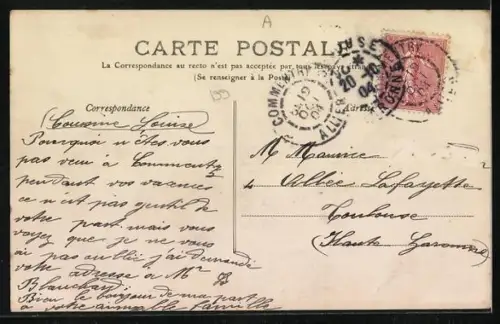 A
CARTE POSTALE
La Correspondance au recto n'est pas acceptée par tous les pays étrangers
(Se renseigner à la Poste)
COMMENTRY
ALLIER
19
OCT
04
20-10
04
Correspondance
Adresse
(Cousine Louise)
Pourquoi n'êtes vous
pas venu à Commentry
pendant vos vacances
ce n'est pas gentil de
votre part. mais vous
voyez que je ne vous
ai pas oublié j'ai demandé
votre adresse à Mr
Blanchard
Bien le bonjour de ma part
à votre aimable famille
M Maurice
4 Allée Lafayette
Toulouse
(Haute Garonne)